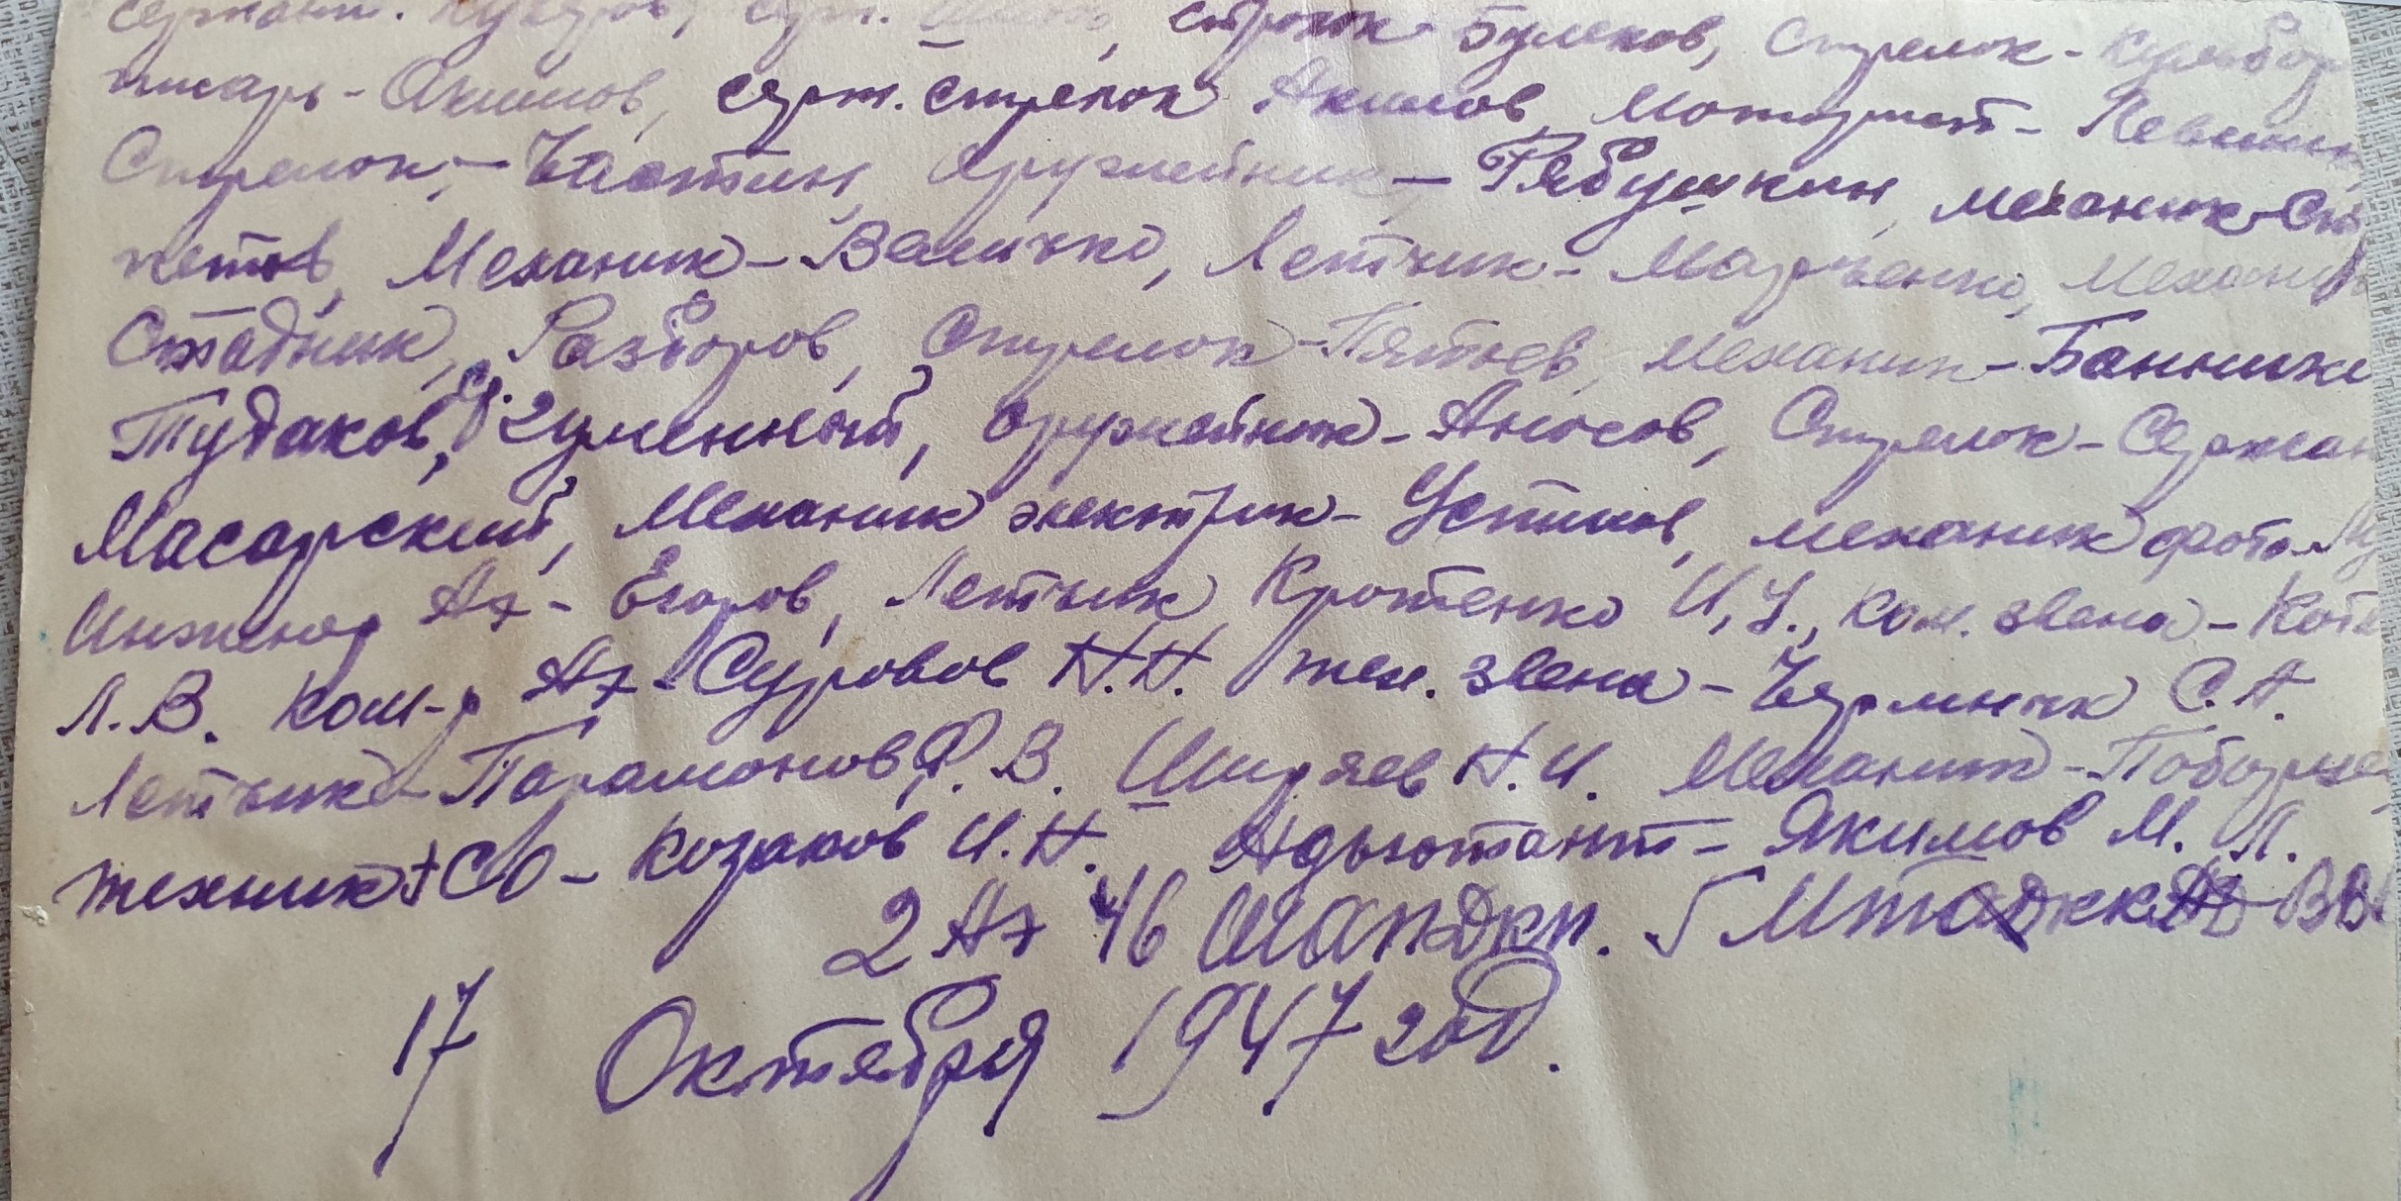 сержант. серж. стрелок Булеков, Стрелок-
писарь - Акимов, серж. стрелок Акимов, Моторист-
Стрелок, - Частин, Оружейник - Рябушкин, механик-
Механик - Величко, Летчик - Марченко, Механик
Стадник, Разборов, Стрелок - Пятьев, Механик - Банник
Тудаков, оружейник - Аносов, Стрелок - Сержан
Масарский, Механик электрик - Устинов, механик фото-
Инженер Аэ - Егоров, Летчик Кротенко И, У., Ком. звена - Кот
Л. В. Ком-р Аэ - Суровов Н. Н. тех. звена - С. А.
Летчик - Парамонов Ф. В. Ширяев Н. И. Механик -
техник + СО - Козаков И. Н. Адьютант - Якимов М. Л.
2 Аэ 46 ШАПДКП.
17 Октября 1947 год.